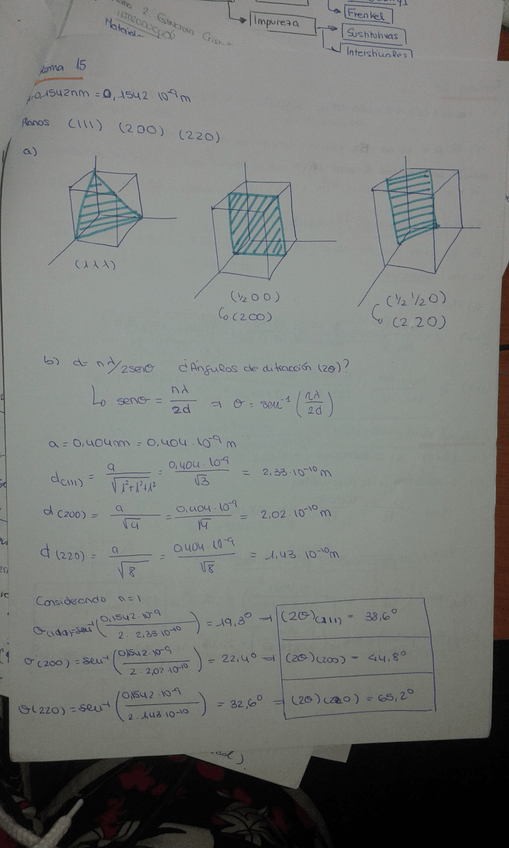 Impureza
Frenkel
Sustitutivas
Intersticiales
15
0,1542nm = 0,1542 10⁻⁹m
Planos (111) (200) (220)
a)
(111)
(½ 0 0)
↳ (200)
(½ ½ 0)
↳ (220)
b) d = nλ/2senθ ¿Ángulos de difracción (2θ)?
↳ senθ = nλ/2d → θ = sen⁻¹ (nλ/2d)
a = 0,404nm = 0,404·10⁻⁹ m
d(111) = a/√(1²+1²+1²) = 0,404·10⁻⁹/√3 = 2,33·10⁻¹⁰ m
d(200) = a/√4 = 0,404·10⁻⁹/√4 = 2,02·10⁻¹⁰ m
d(220) = a/√8 = 0,404·10⁻⁹/√8 = 1,43 10⁻¹⁰m
Considerando n=1
θ(111) = sen⁻¹(0,1542·10⁻⁹/2·2,33·10⁻¹⁰) = 19,3° → (2θ)(111) = 38,6°
θ(200) = sen⁻¹(0,1542·10⁻⁹/2·2,02·10⁻¹⁰) = 22,4° → (2θ)(200) = 44,8°
θ(220) = sen⁻¹(0,1542·10⁻⁹/2·1,43·10⁻¹⁰) = 32,6° = (2θ)(220) = 65,2°